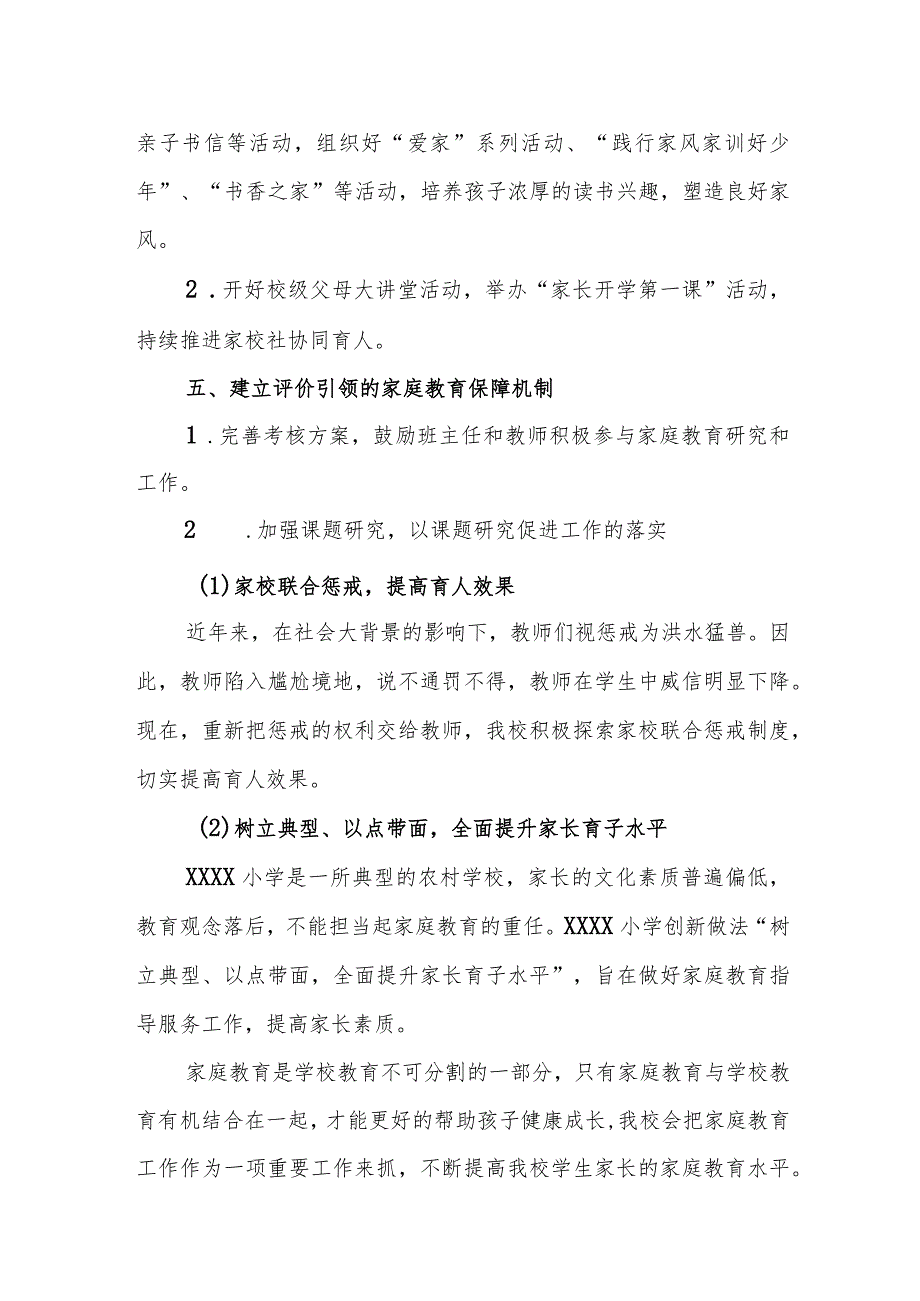 亲子书信等活动，组织好“爱家”系列活动、“践行家风家训好少
年”、“书香之家”等活动，培养孩子浓厚的读书兴趣，塑造良好家
风。
2 .开好校级父母大讲堂活动，举办“家长开学第一课”活动，
持续推进家校社协同育人。
五、建立评价引领的家庭教育保障机制
1 .完善考核方案，鼓励班主任和教师积极参与家庭教育研究和
工作。
2 .加强课题研究，以课题研究促进工作的落实
(1)家校联合惩戒，提高育人效果
近年来，在社会大背景的影响下，教师们视惩戒为洪水猛兽。因
此，教师陷入尴尬境地，说不通罚不得，教师在学生中威信明显下降。
现在，重新把惩戒的权利交给教师，我校积极探索家校联合惩戒制度，
切实提高育人效果。
(2)树立典型、以点带面，全面提升家长育子水平
XXXX小学是一所典型的农村学校，家长的文化素质普遍偏低，
教育观念落后，不能担当起家庭教育的重任。XXXX小学创新做法“树
立典型、以点带面，全面提升家长育子水平”，旨在做好家庭教育指
导服务工作，提高家长素质。
家庭教育是学校教育不可分割的一部分，只有家庭教育与学校教
育有机结合在一起，才能更好的帮助孩子健康成长,我校会把家庭教育
工作作为一项重要工作来抓，不断提高我校学生家长的家庭教育水平。